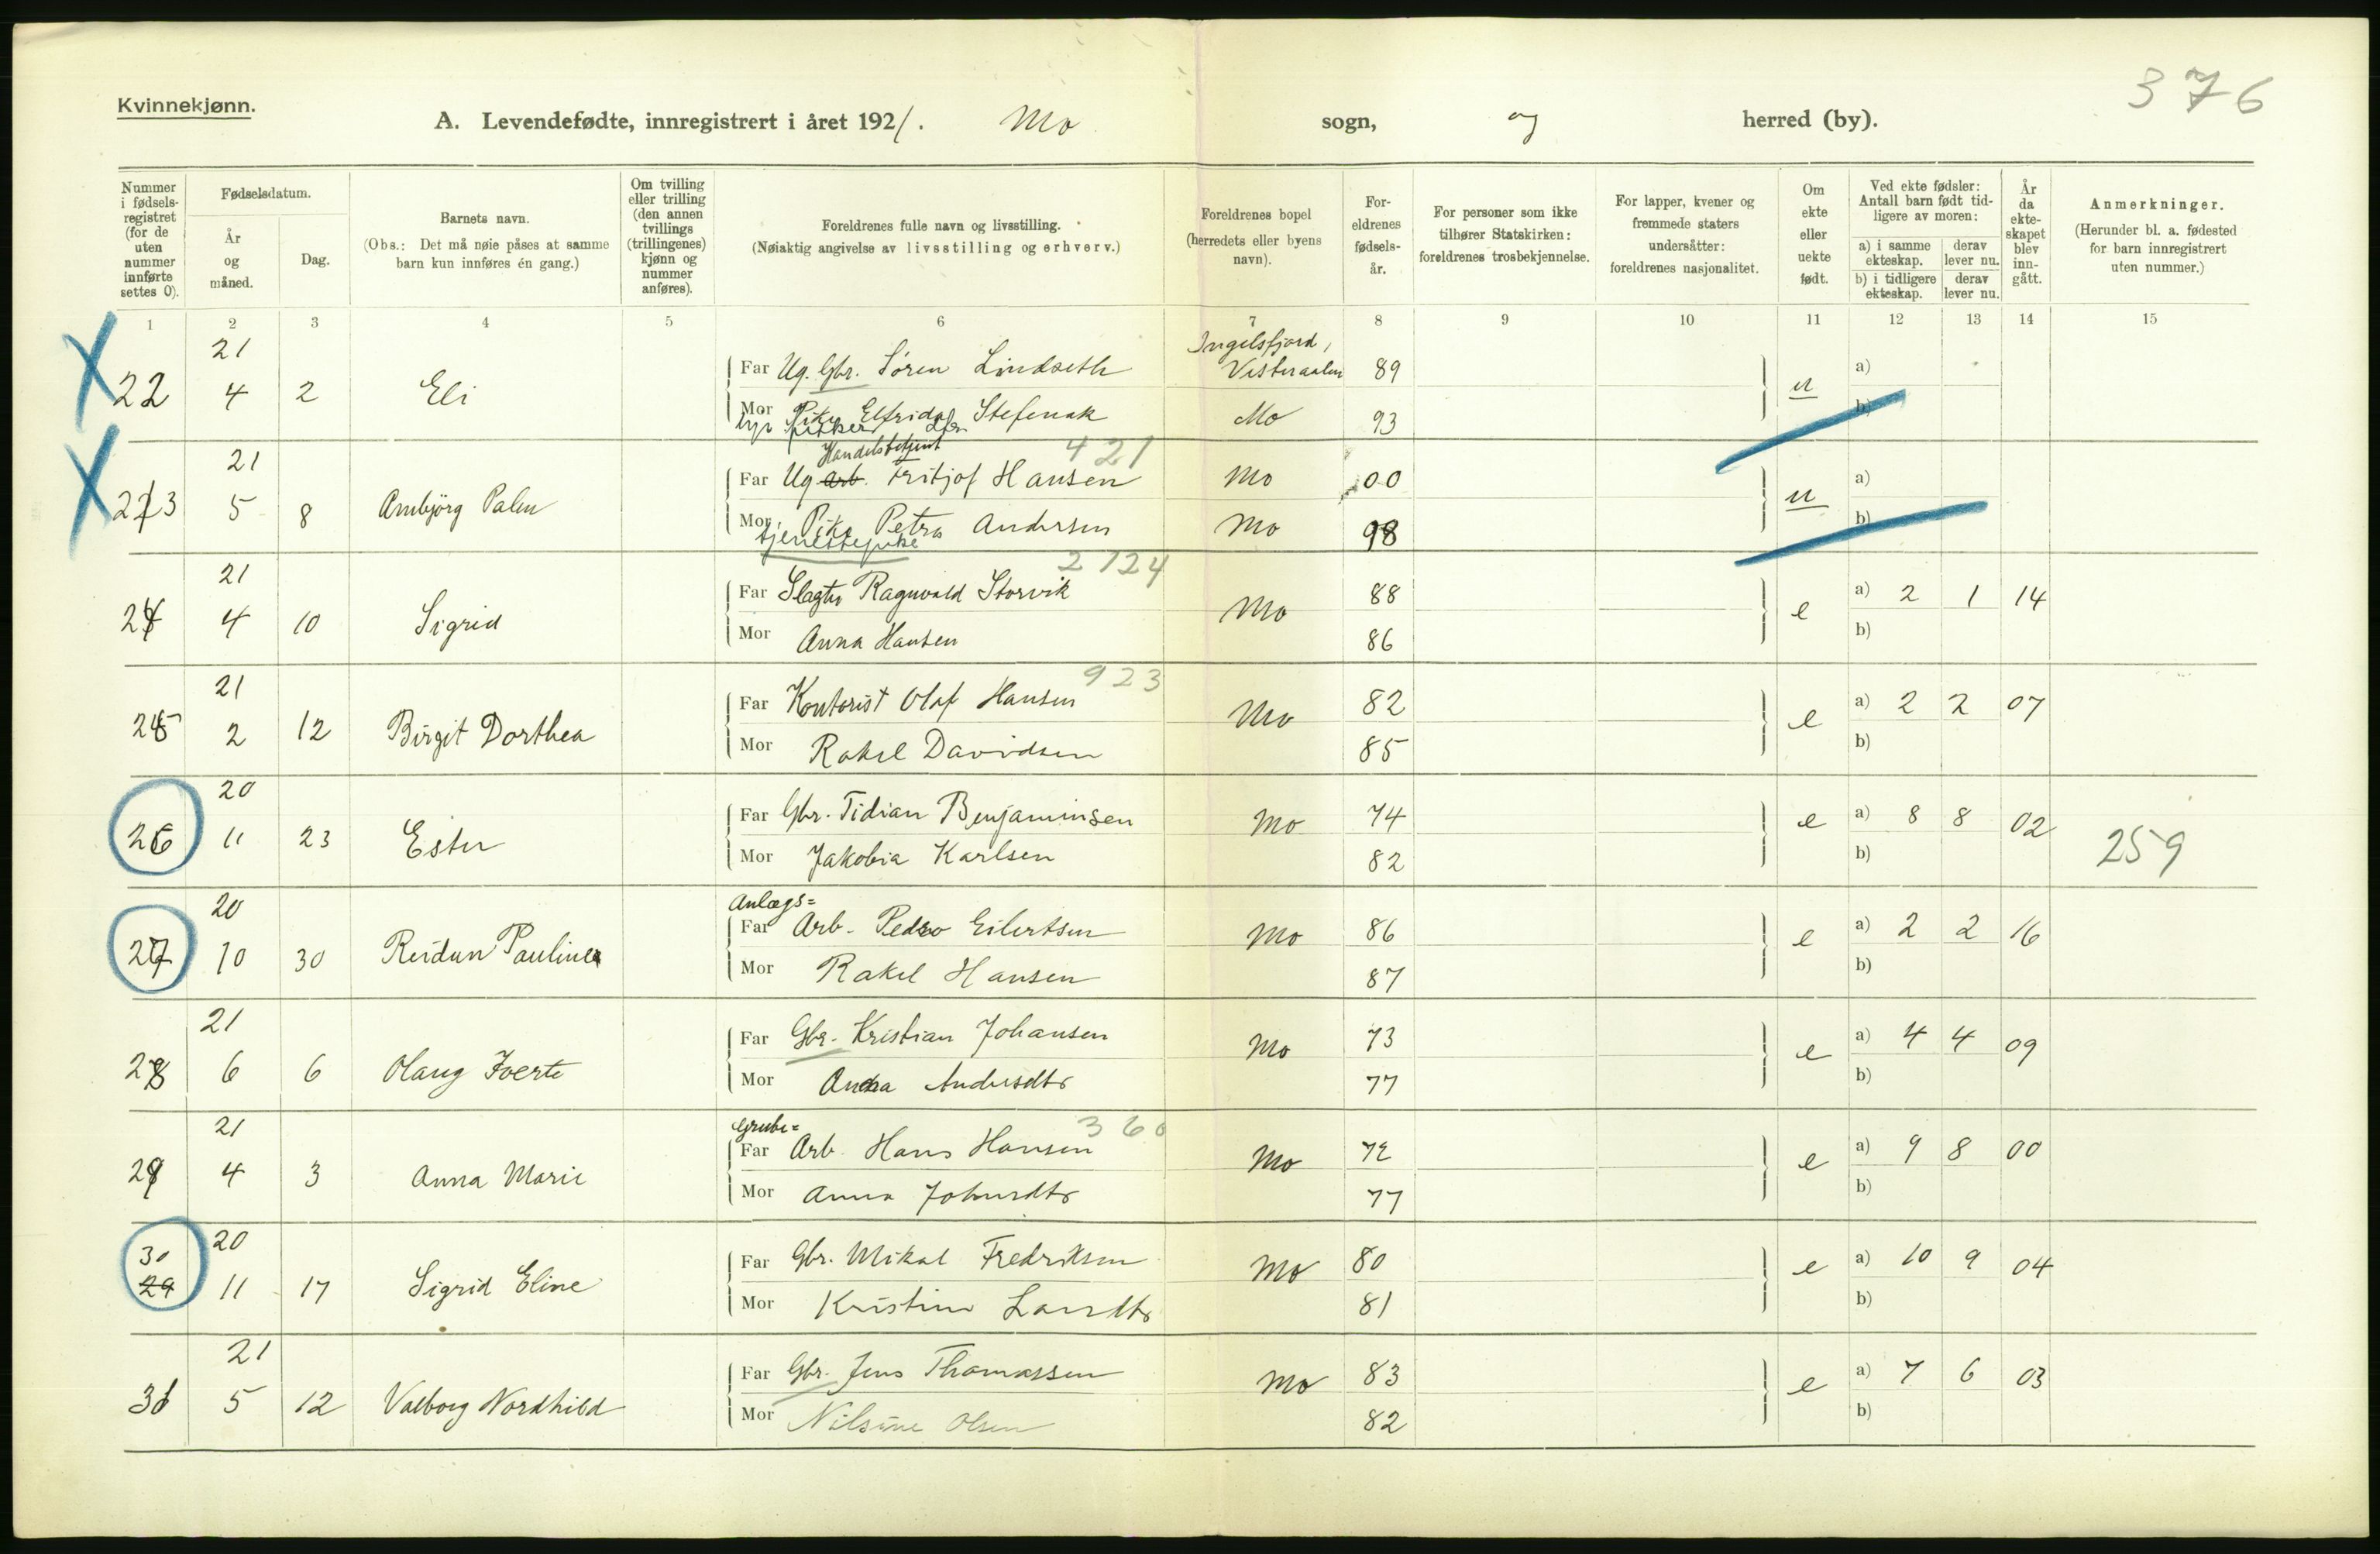 376
Kvinnekjønn.
A. Levendefødte, innregistrert i året 1921. Mo sogn, og herred (by).
Nummer i fødsels-registret (for de uten nummer innførte settes 0).
Fødselsdatum.
År og måned.
Dag.
Barnets navn.
(Obs.: Det må nøie påses at samme barn kun innføres én gang.)
Om tvilling eller trilling (den annen tvillings (trillingenes) kjønn og nummer anføres).
Foreldrenes fulle navn og livsstilling.
(Nøiaktig angivelse av livsstilling og erhverv.)
Foreldrenes bopel (herredets eller byens navn).
For-eldrenes fødsels-år.
For personer som ikke tilhører Statskirken: foreldrenes trosbekjennelse.
For lapper, kvener og fremmede staters undersåtter: foreldrenes nasjonalitet.
Om ekte eller uekte født.
Ved ekte fødsler: Antall barn født tid-ligere av moren:
a) i samme ekteskap.
derav lever nu.
b) i tidligere ekteskap.
derav lever nu.
År da ekte-skapet blev inn-gått.
Anmerkninger.
(Herunder bl. a. fødested for barn innregistrert uten nummer.)
1 2 3 4 5 6 7 8 9 10 11 12 13 14 15
22 21 4 2 Eli
Far Ug. Gbr. Søren Lindseth Ingelsfjord, Vesteraalen 89 u a)
Mor Pike Elfrida Stefenak Mo 93 b)
421
23 21 5 8 Arnbjörg Palm
Handelsbetjent
Far Ug arb. Fritjof Hansen Mo 00 u a)
Mor Pike Petra Andersen Mo 98 b)
tjenestepike
2724
24 21 4 10 Sigrid
Far Slagter Ragnvald Storvik Mo 88 e a) 2 1 14
Mor Anna Hansen 86 b)
923
25 21 2 12 Birgit Dorthea
Far Kontorist Olaf Hansen Mo 82 e a) 2 2 07
Mor Rakel Davidsen 85 b)
26 20 11 23 Ester
Far Gbr. Tidian Benjaminsen Mo 74 e a) 8 8 02 259
Mor Jakobia Karlsen 82 b)
27 20 10 30 Reidun Pauline
Anlægs=
Far Arb. Pedro Eilertsen Mo 86 e a) 2 2 16
Mor Rakel Hansen 87 b)
28 21 6 6 Olaug Iverte
Far Gbr. Kristian Johansen Mo 73 e a) 4 4 09
Mor Anna Andersdtr 77 b)
360
29 21 4 3 Anna Marie
Grube=
Far Arb. Hans Hansen Mo 72 e a) 9 8 00
Mor Anna Johnsdtr 77 b)
30 29 20 11 17 Sigrid Eline
Far Gbr. Mikal Fredriksen Mo 80 e a) 10 9 04
Mor Kristine Larsdtr 81 b)
31 21 5 12 Valborg Nordhild
Far Gbr. Jens Thomassen Mo 83 e a) 7 6 03
Mor Nilsine Olsen 82 b)